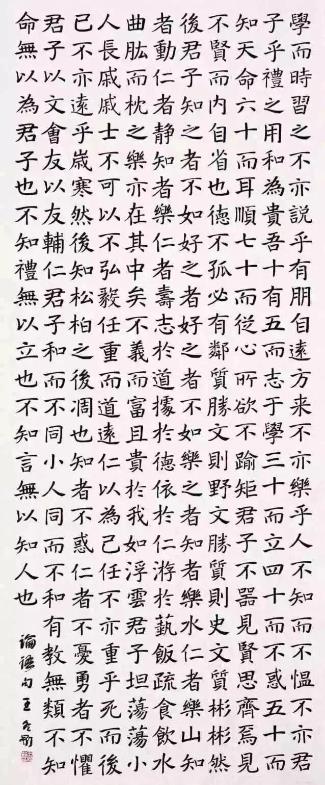 學而時習之不亦説乎有朋自遠方来不亦樂乎人不知而不愠不亦君
子乎禮之用和為貴吾十有五而志于學三十而立四十而不惑五十而
知天命六十而耳順七十而從心所欲不踰矩君子不器見賢思齊焉見
不賢而内自省也德不孤必有鄰質勝文則野文勝質則史文質彬彬然
後君子知之者不如好之者好之者不如樂之者知者樂水仁者樂山知
者動仁者静知者樂仁者壽志於道據於德依於仁游於藝飯疏食飲水
曲肱而枕之樂亦在其中矣不義而富且貴於我如浮雲君子坦蕩蕩小
人長戚戚士不可以不弘毅任重而道遠仁以為己任不亦重乎死而後
已不亦遠乎歳寒然後知松柏之後凋也知者不惑仁者不憂勇者不懼
君子以文會友以友輔仁君子和而不同小人同而不和有教無類不知
命無以為君子也不知禮無以立也不知言無以知人也
論語句王